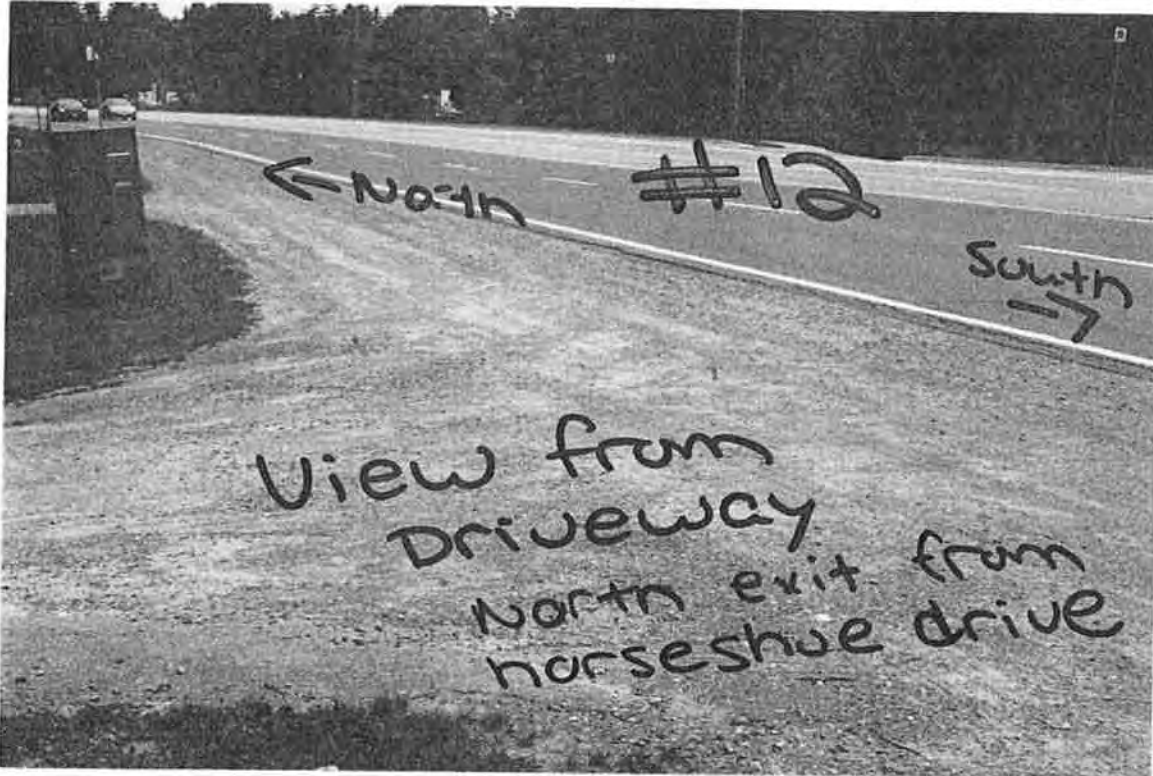 ← North
#12
South
→
View from
Driveway
North exit from
horseshoe drive